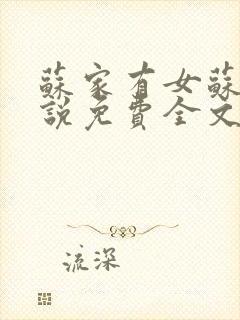 蘇家有女蘇
說免費全文
流深